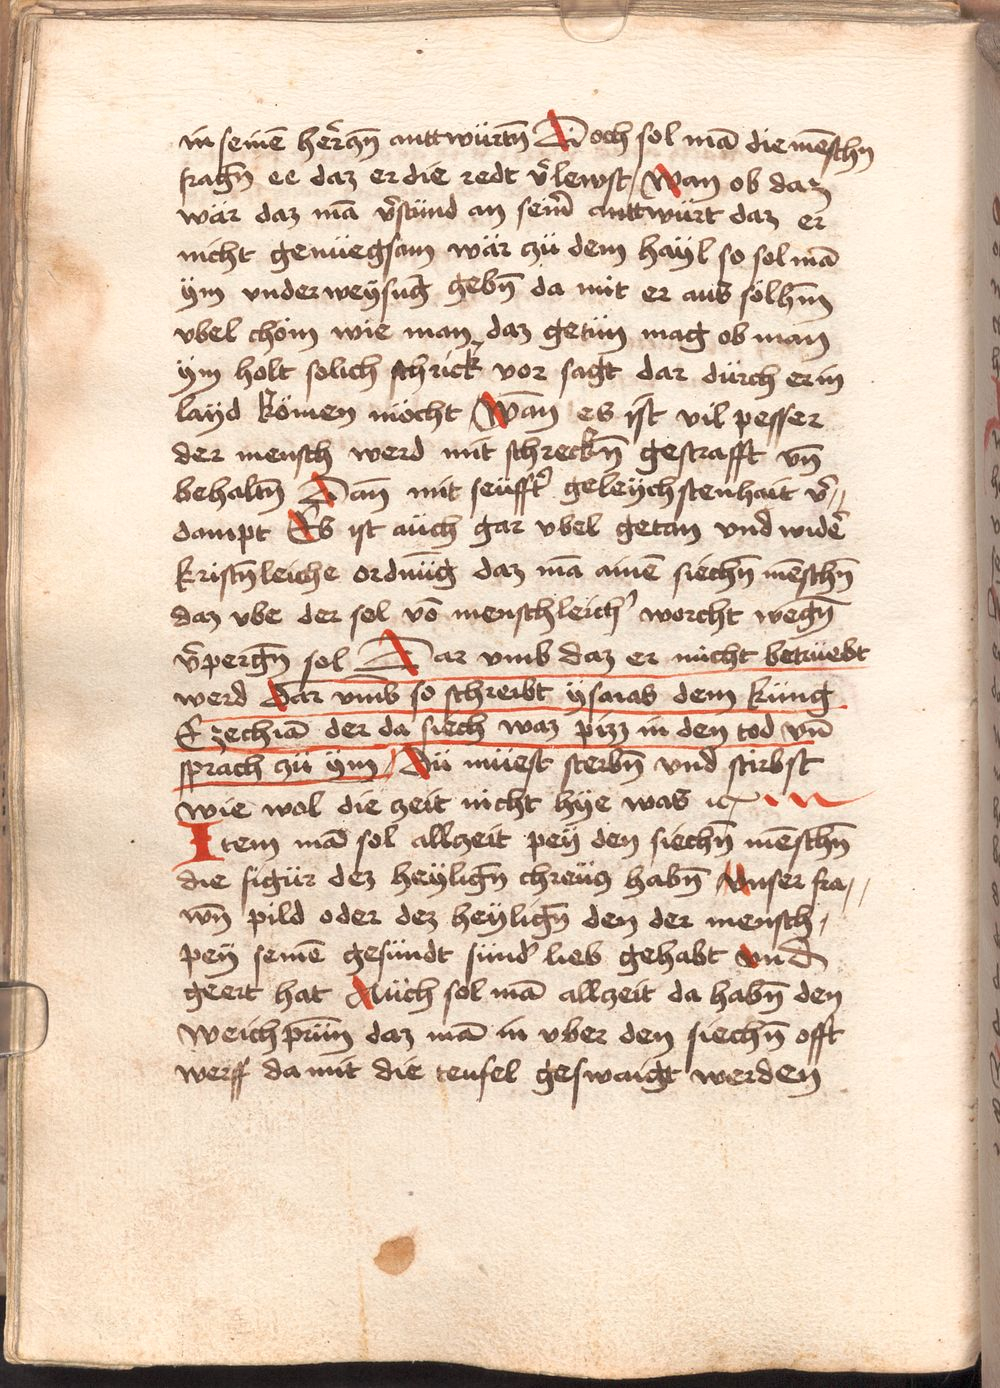 in seinē her̄czn̄ anttwürtn̄ Doch sol mā die mēschn
fragn̄ ee daz er die redt v̄lewst / Wan ob daz
wär daz mā v̄stünd an seim̄ anttwürt daz er
nicht genüegsam wär zü dem hayl so sol mā
ym vnderweysūg gebn̄ da mit er aus sölhm̄
vbel chöm wie man daz getün mag ob man
ym holt solich schrick vor sagt dar dürch er in
layd kömen möcht / Wan es ist vil pesser
der mensch werd mit schreckn̄ gestrafft vn̄
behaltn̄ Dan̄ mit seüfft᷑ geleychstenhait v̄//
dampt Es ist aüch gar vbel getan vnd wide᷑
kristn̄leiche ordnūg daz mā ainē siechn̄ mēschn̄
daz vbe der sel vō menschleich᷑ worcht wegn̄
v̄pergn̄ sol Dar vmb daz er nicht betrüebt
werd Dar vmb so schreibt ysaias dem küng
Ezechiā der da siech waz pizz in den tod vn̄
sprach zü ym / Dü müest sterbn̄ vnd stirbst
wie wol die zeit nicht hye was ⁊c
Item mā sol allzeit pey den siechn̄ mēschn̄
die figür dez heylign̄ chreücz habn̄ Vnser fra//
wn̄ pild oder dez heylign̄ den der mensch /
pey seinē gesündt sünd᷑ lieb gehabt vnd
geert hat Aüch sol mā allzeit da habn̄ den
weichprün̄ daz mā in vber den siechn̄ offt
werff da mit die teufel geswaigt werden